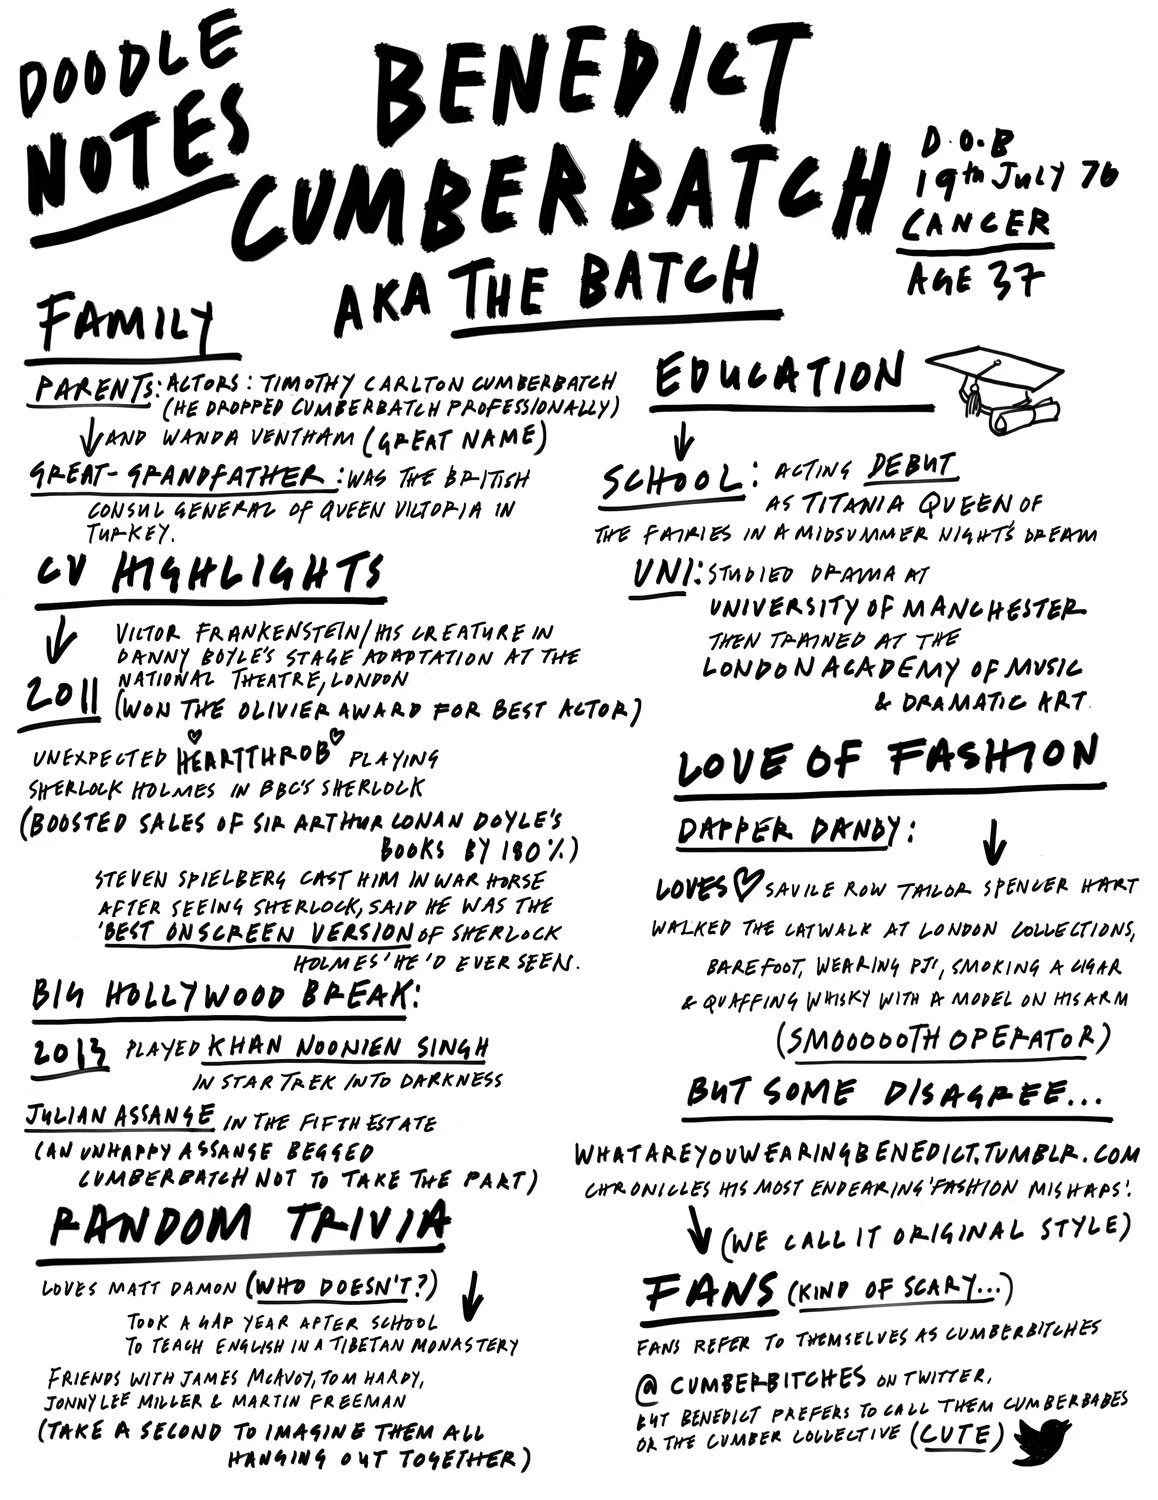 DOODLE
NOTES
BENEDICT
CUMBERBATCH
AKA THE BATCH
D.O.B
19th JULY 76
CANCER
AGE 37
FAMILY
PARENTS: ACTORS: TIMOTHY CARLTON CUMBERBATCH
(HE DROPPED CUMBERBATCH PROFESSIONALLY)
AND WANDA VENTHAM (GREAT NAME)
GREAT-GRANDFATHER: WAS THE BRITISH
CONSUL GENERAL OF QUEEN VICTORIA IN
TURKEY.
CV HIGHLIGHTS
2011
VICTOR FRANKENSTEIN/HIS CREATURE IN
DANNY BOYLE'S STAGE ADAPTATION AT THE
NATIONAL THEATRE, LONDON
(WON THE OLIVIER AWARD FOR BEST ACTOR)
UNEXPECTED HEARTTHROB PLAYING
SHERLOCK HOLMES IN BBC'S SHERLOCK
(BOOSTED SALES OF SIR ARTHUR CONAN DOYLE'S
BOOKS BY 180%)
STEVEN SPIELBERG CAST HIM IN WAR HORSE
AFTER SEEING SHERLOCK, SAID HE WAS THE
'BEST ONSCREEN VERSION OF SHERLOCK
HOLMES' HE'D EVER SEEN.
BIG HOLLYWOOD BREAK:
2013 PLAYED KHAN NOONIEN SINGH
IN STAR TREK INTO DARKNESS
JULIAN ASSANGE IN THE FIFTH ESTATE
(AN UNHAPPY ASSANGE BEGGED
CUMBERBATCH NOT TO TAKE THE PART)
RANDOM TRIVIA
LOVES MATT DAMON (WHO DOESN'T?)
TOOK A GAP YEAR AFTER SCHOOL
TO TEACH ENGLISH IN A TIBETAN MONASTERY
FRIENDS WITH JAMES McAVOY, TOM HARDY,
JONNY LEE MILLER & MARTIN FREEMAN
(TAKE A SECOND TO IMAGINE THEM ALL
HANGING OUT TOGETHER)
EDUCATION
SCHOOL: ACTING DEBUT
AS TITANIA QUEEN OF
THE FAIRIES IN A MIDSUMMER NIGHT'S DREAM
UNI: STUDIED DRAMA AT
UNIVERSITY OF MANCHESTER
THEN TRAINED AT THE
LONDON ACADEMY OF MUSIC
& DRAMATIC ART.
LOVE OF FASHION
DAPPER DANDY:
LOVES SAVILE ROW TAILOR SPENCER HART
WALKED THE CATWALK AT LONDON COLLECTIONS,
BAREFOOT, WEARING PJ'S, SMOKING A CIGAR
& QUAFFING WHISKY WITH A MODEL ON HIS ARM
(SMOOOOOTH OPERATOR)
BUT SOME DISAGREE...
WHATAREYOUWEARINGBENEDICT.TUMBLR.COM
CHRONICLES HIS MOST ENDEARING 'FASHION MISHAPS'.
(WE CALL IT ORIGINAL STYLE)
FANS (KIND OF SCARY...)
FANS REFER TO THEMSELVES AS CUMBERBITCHES
@CUMBERBITCHES ON TWITTER,
BUT BENEDICT PREFERS TO CALL THEM CUMBERBABES
OR THE CUMBER COLLECTIVE (CUTE)